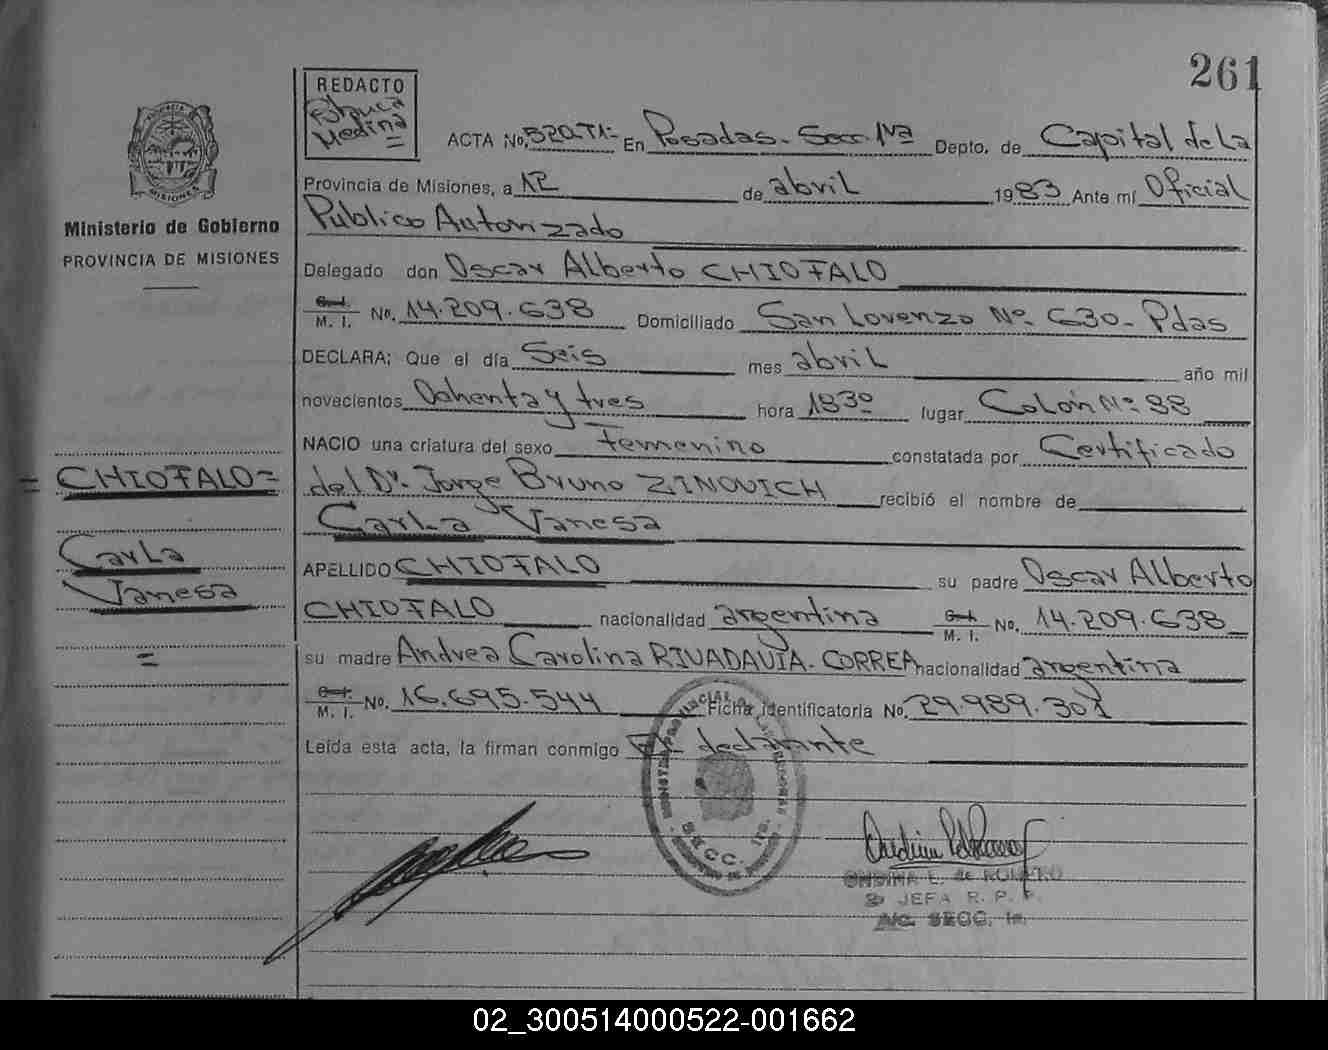 261
REDACTO
Medina
ACTA No. 520.T1= En Posadas. Secc. 1ra Depto. de Capital de La
Provincia de Misiones, a 12 de abril 1983 Ante mí Oficial
Público Autorizado
Delegado don Oscar Alberto CHIOFALO
M. I. No. 14.209.638 Domiciliado San Lorenzo Nº. 630_ Pdas
DECLARA; Que el día Seis mes abril año mil
novecientos Ochenta y tres hora 1830 lugar Colón Nº 88
NACIO una criatura del sexo Femenino constatada por Certificado
del Dr. Jorge Bruno ZINOVICH recibió el nombre de
Carla Vanesa
APELLIDO CHIOFALO su padre Oscar Alberto
CHIOFALO nacionalidad argentina M. I. No. 14.209.638
su madre Andrea Carolina RIVADAVIA. CORREA nacionalidad argentina
M. I. No. 16.695.544 Ficha identificatoria No. 29.989.301
Leída esta acta, la firman conmigo El declarante
PROVINCIA
MISIONES
Ministerio de Gobierno
PROVINCIA DE MISIONES
= CHIOFALO =
Carla
Vanesa
=
SECC. 1ra.
ONDINA E. de ROMERO
JEFA R. P. P.
A/C. SECC. 1a.
02_300514000522-001662